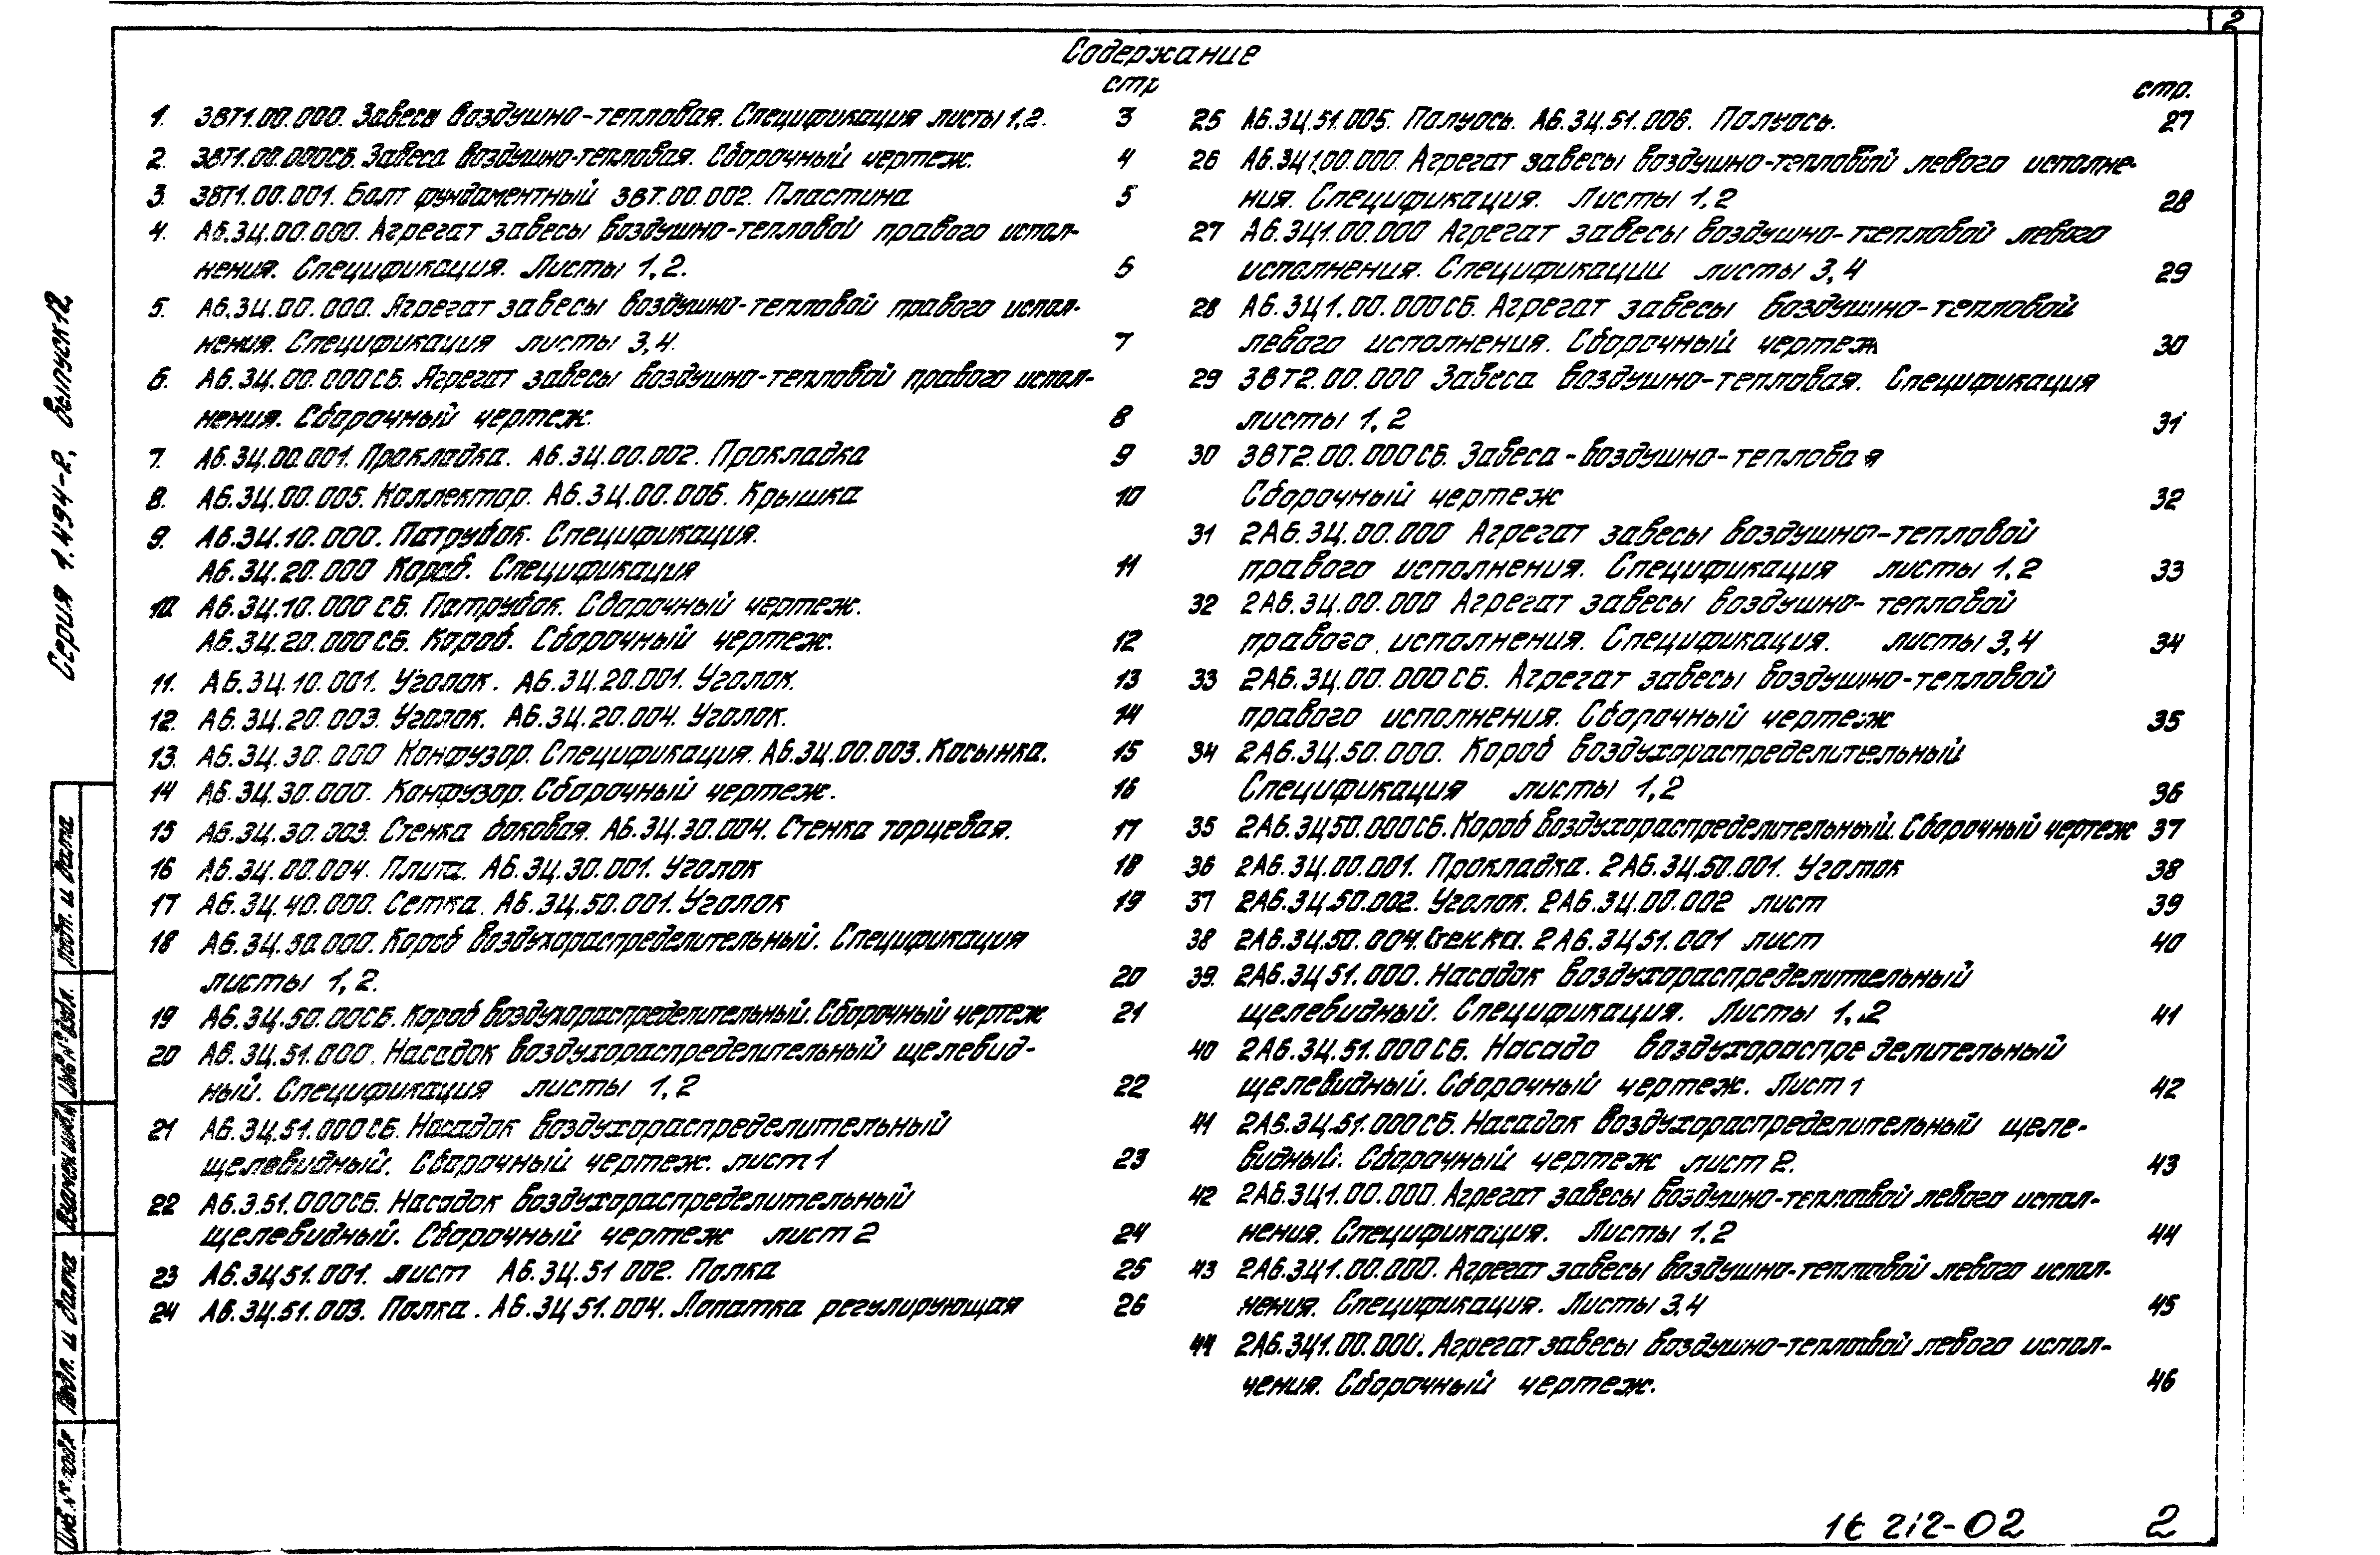 2
Содержание
стр
1. ЗВТ1.00.000. Завеса воздушно-тепловая. Спецификация листы 1,2. 3
2. ЗВТ1.00.000СБ. Завеса воздушно-тепловая. Сборочный чертеж. 4
3. ЗВТ1.00.001. Болт фундаментный ЗВТ.00.002. Пластина 5
4. А6.3Ц.00.000. Агрегат завесы воздушно-тепловой правого испол-
нения. Спецификация. Листы 1,2. 6
5. А6.3Ц.00.000. Агрегат завесы воздушно-тепловой правого испол-
нения. Спецификация листы 3,4. 7
6. А6.3Ц.00.000СБ. Агрегат завесы воздушно-тепловой правого испол-
нения. Сборочный чертеж. 8
7. А6.3Ц.00.001. Прокладка. А6.3Ц.00.002. Прокладка 9
8. А6.3Ц.00.005. Коллектор. А6.3Ц.00.006. Крышка 10
9. А6.3Ц.10.000. Патрубок. Спецификация.
А6.3Ц.20.000 Короб. Спецификация 11
10. А6.3Ц.10.000 СБ. Патрубок. Сборочный чертеж.
А6.3Ц.20.000СБ. Короб. Сборочный чертеж. 12
11. А6.3Ц.10.001. Уголок. А6.3Ц.20.001. Уголок. 13
12. А6.3Ц.20.003. Уголок. А6.3Ц.20.004. Уголок. 14
13. А6.3Ц.30.000 Конфузор. Спецификация. А6.3Ц.00.003. Косынка. 15
14 А6.3Ц.30.000. Конфузор. Сборочный чертеж. 16
15 А6.3Ц.30.003. Стенка боковая. А6.3Ц.30.004. Стенка торцевая. 17
16 А6.3Ц.00.004. Плита. А6.3Ц.30.001. Уголок 18
17 А6.3Ц.40.000. Сетка. А6.3Ц.50.001. Уголок 19
18 А6.3Ц.50.000. Короб воздухораспределительный. Спецификация
листы 1,2. 20
19 А6.3Ц.50.00СБ. Короб воздухораспределительный. Сборочный чертеж 21
20 А6.3Ц.51.000. Насадок воздухораспределительный щелевид-
ный. Спецификация листы 1,2 22
21 А6.3Ц.51.000СБ. Насадок воздухораспределительный
щелевидный. Сборочный чертеж. лист 1 23
22 А6.3.51.000СБ. Насадок воздухораспределительный
щелевидный. Сборочный чертеж лист 2 24
23 А6.3Ц51.001. лист А6.3Ц.51 002. Полка 25
24 А6.3Ц.51.003. Полка. А6.3Ц51.004. Лопатка регулирующая 26
стр.
25 А6.3Ц.51.005. Полуось. А6.3Ц.51.006. Полуось. 27
26 А6.3Ц1.00.000. Агрегат завесы воздушно-тепловой левого исполне-
ния. Спецификация. Листы 1,2 28
27 А6.3Ц1.00.000 Агрегат завесы воздушно-тепловой левого
исполнения. Спецификации листы 3,4 29
28 А6.3Ц1.00.000СБ. Агрегат завесы воздушно-тепловой
левого исполнения. Сборочный чертеж 30
29 ЗВТ2.00.000 Завеса воздушно-тепловая. Спецификация
листы 1,2 31
30 ЗВТ2.00.000СБ. Завеса-воздушно-тепловая
Сборочный чертеж 32
31 2А6.3Ц.00.000 Агрегат завесы воздушно-тепловой
правого исполнения. Спецификация листы 1,2 33
32 2А6.3Ц.00.000 Агрегат завесы воздушно-тепловой
правого исполнения. Спецификация. листы 3,4 34
33 2А6.3Ц.00.000СБ. Агрегат завесы воздушно-тепловой
правого исполнения. Сборочный чертеж 35
34 2А6.3Ц.50.000. Короб воздухораспределительный
Спецификация листы 1,2 36
35 2А6.3Ц50.000СБ. Короб воздухораспределительный. Сборочный чертеж 37
36 2А6.3Ц.00.001. Прокладка. 2А6.3Ц.50.001. Уголок 38
37 2А6.3Ц.50.002. Уголок. 2А6.3Ц.00.002 лист 39
38 2А6.3Ц.50.004. Стенка. 2А6.3Ц51.001 лист 40
39. 2А6.3Ц51.000. Насадок воздухораспределительный
щелевидный. Спецификация. Листы 1,2 41
40 2А6.3Ц.51.000СБ. Насадо воздухораспределительный
щелевидный. Сборочный чертеж. Лист 1 42
41 2А6.3Ц.51.000СБ. Насадок воздухораспределительный щеле-
видный. Сборочный чертеж лист 2. 43
42 2А6.3Ц1.00.000. Агрегат завесы воздушно-тепловой левого испол-
нения. Спецификация. Листы 1.2 44
43 2А6.3Ц1.00.000. Агрегат завесы воздушно-тепловой левого испол-
нения. Спецификация. Листы 3.4 45
44 2А6.3Ц1.00.000. Агрегат завесы воздушно-тепловой левого испол-
чения. Сборочный чертеж. 46
Серия 1.494-2, выпуск 12
Подп. и дата
Инв № дубл.
Взамен инв. №
Подп. и дата
Инв. № подл
16 212-02 2